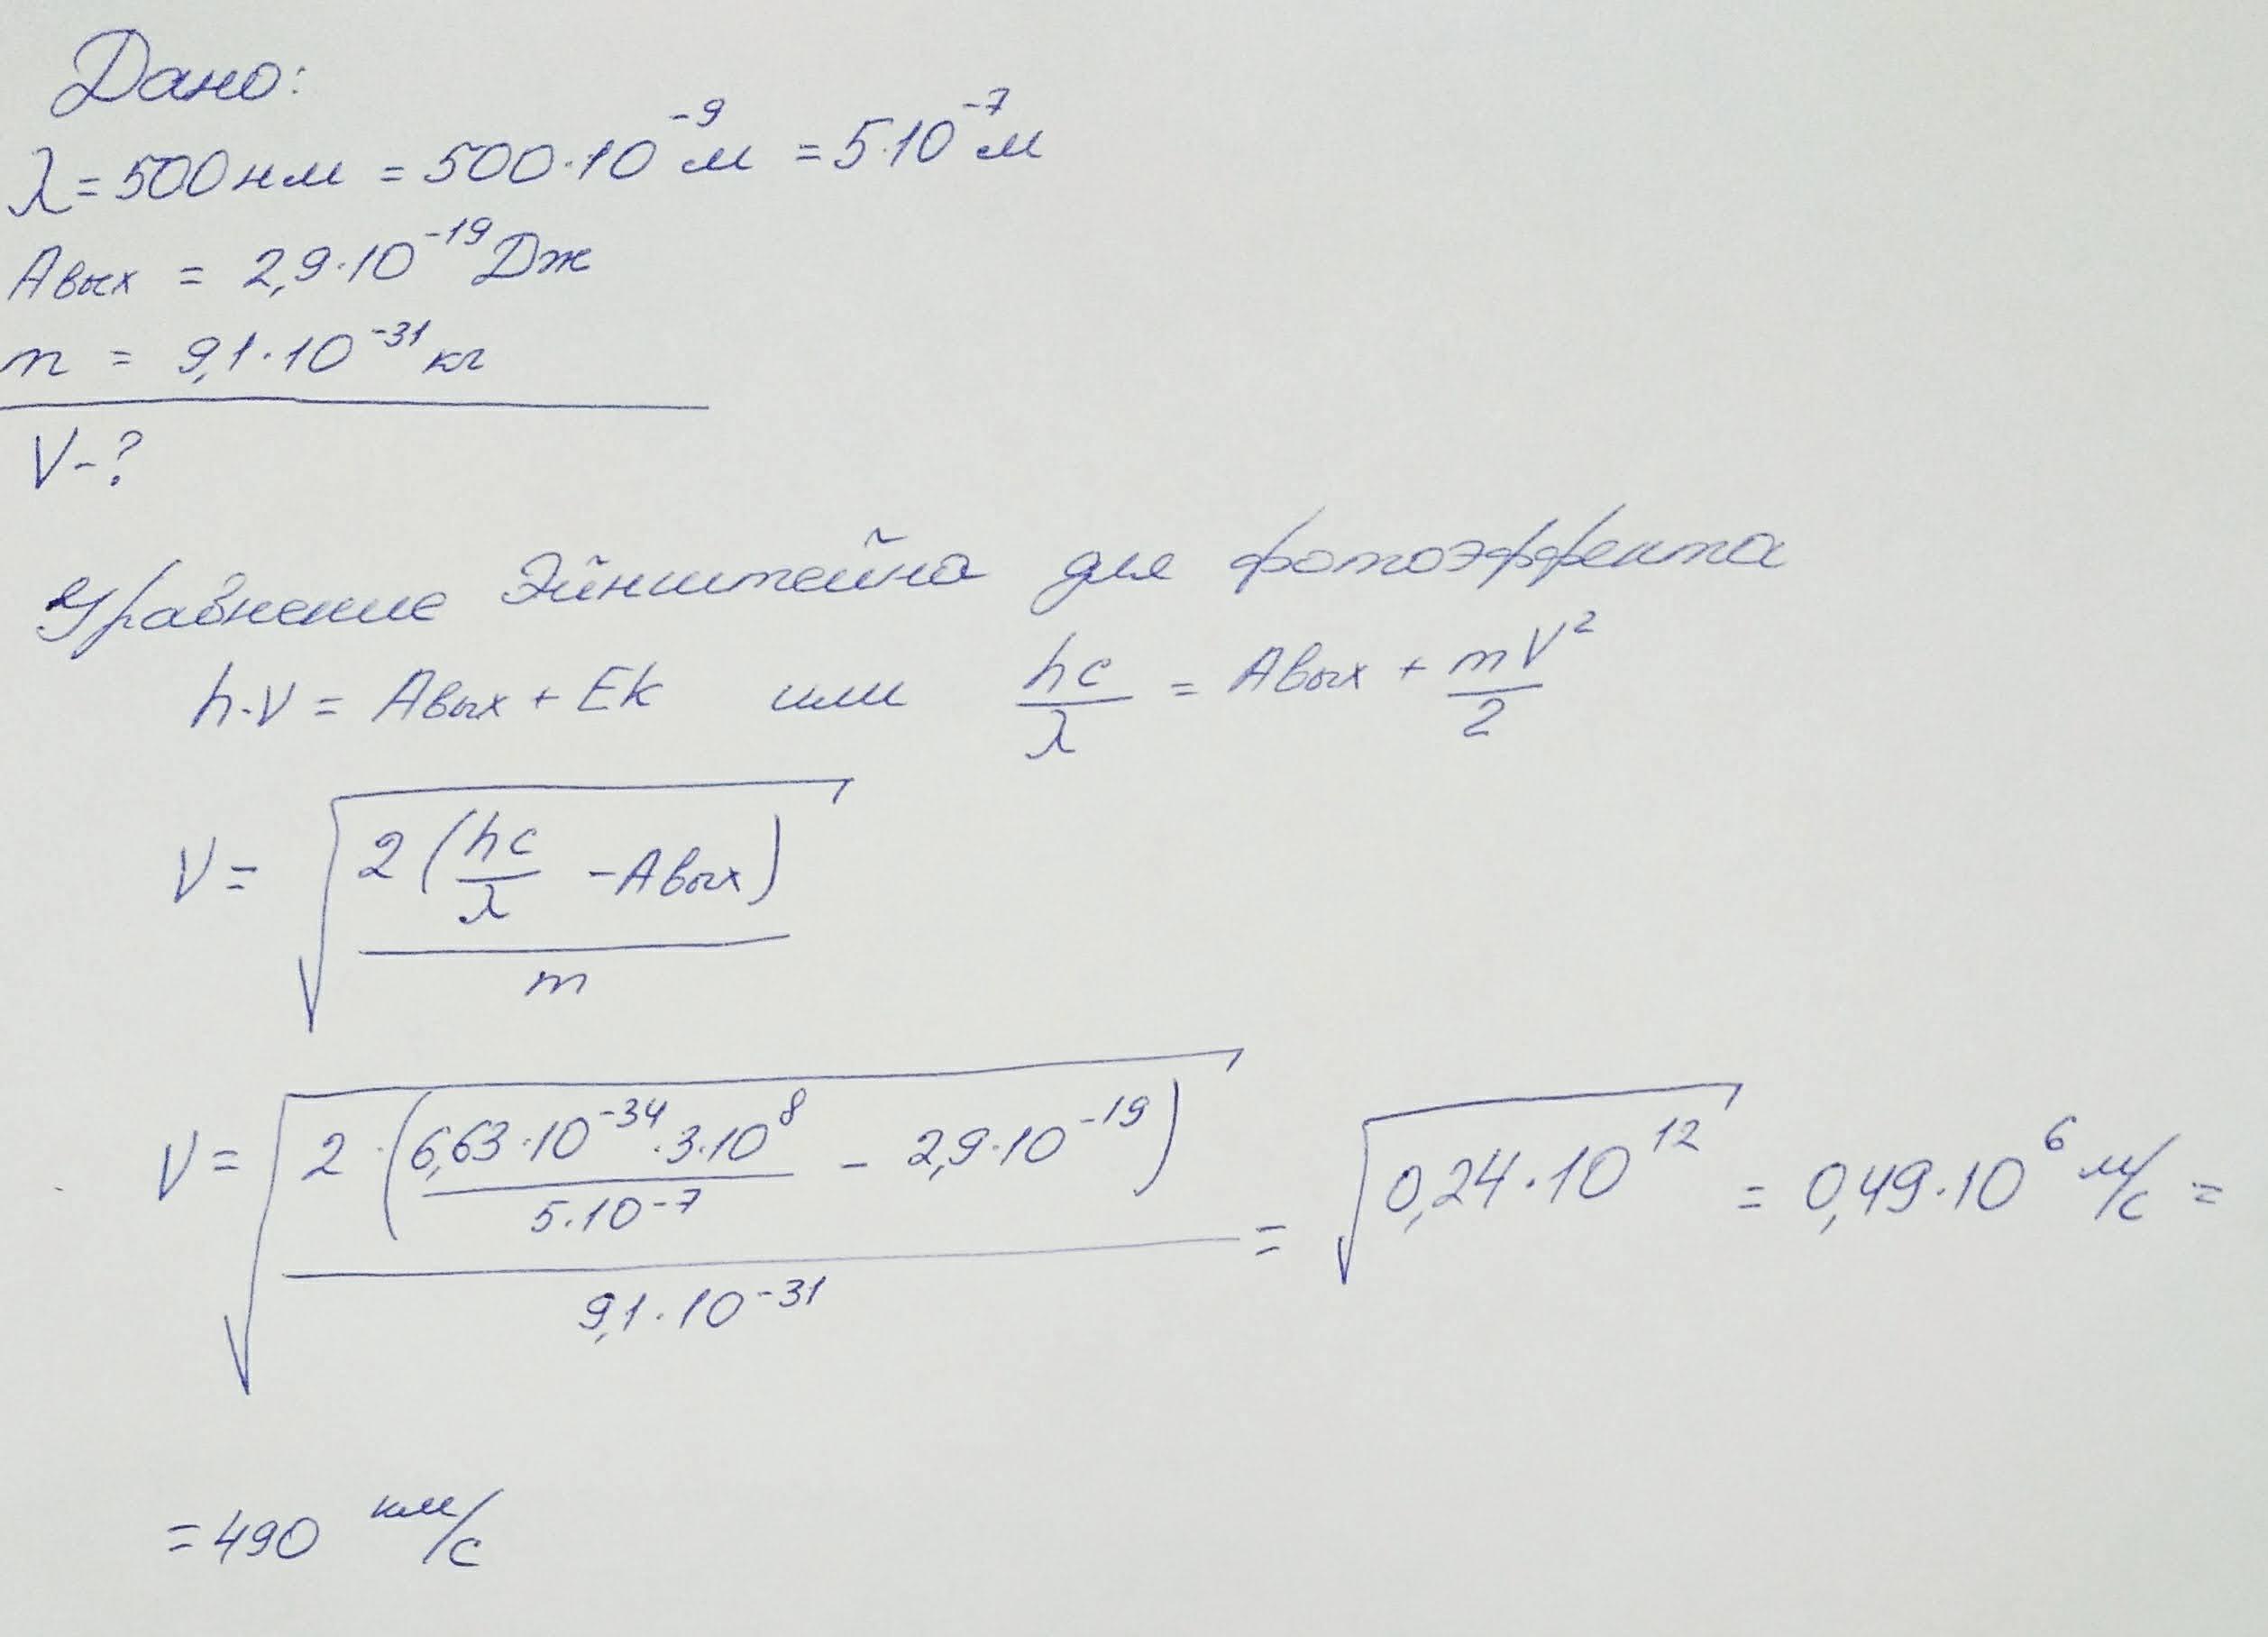 Дано:
λ = 500 нм = 500·10⁻⁹ м = 5·10⁻⁷ м
Aвых = 2,9·10⁻¹⁹ Дж
m = 9,1·10⁻³¹ кг
V-?
Уравнение Эйнштейна для фотоэффекта
h·ν = Aвых + Ek или hc/λ = Aвых + mV²/2
V = √(2(hc/λ - Aвых)/m)
V = √(2·(6,63·10⁻³⁴·3·10⁸/5·10⁻⁷ - 2,9·10⁻¹⁹)/9,1·10⁻³¹) = √(0,24·10¹²) = 0,49·10⁶ м/с =
= 490 км/с